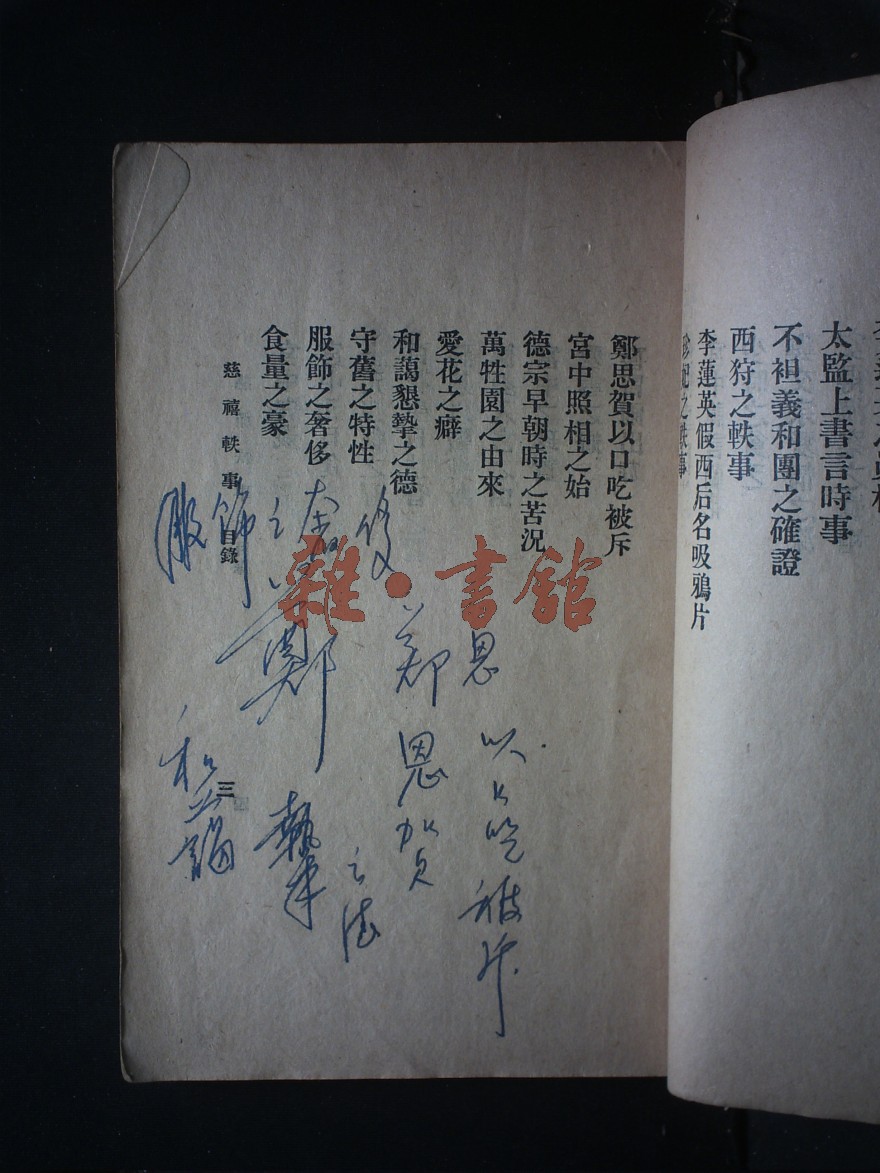 太監上書言時事
不袒義和團之確證
西狩之軼事
李蓮英假西后名吸鴉片
珍妃之軼事
鄭思賀以口吃被斥
宮中照相之始
德宗早朝時之苦況
萬牲園之由來
愛花之癖
和藹懇摯之德
守舊之特性
服飾之奢侈
食量之豪
慈禧軼事 目錄
三
雜·書館
思
以口吃被斥
鄭
思賀
之德
服飾之奢
鄭